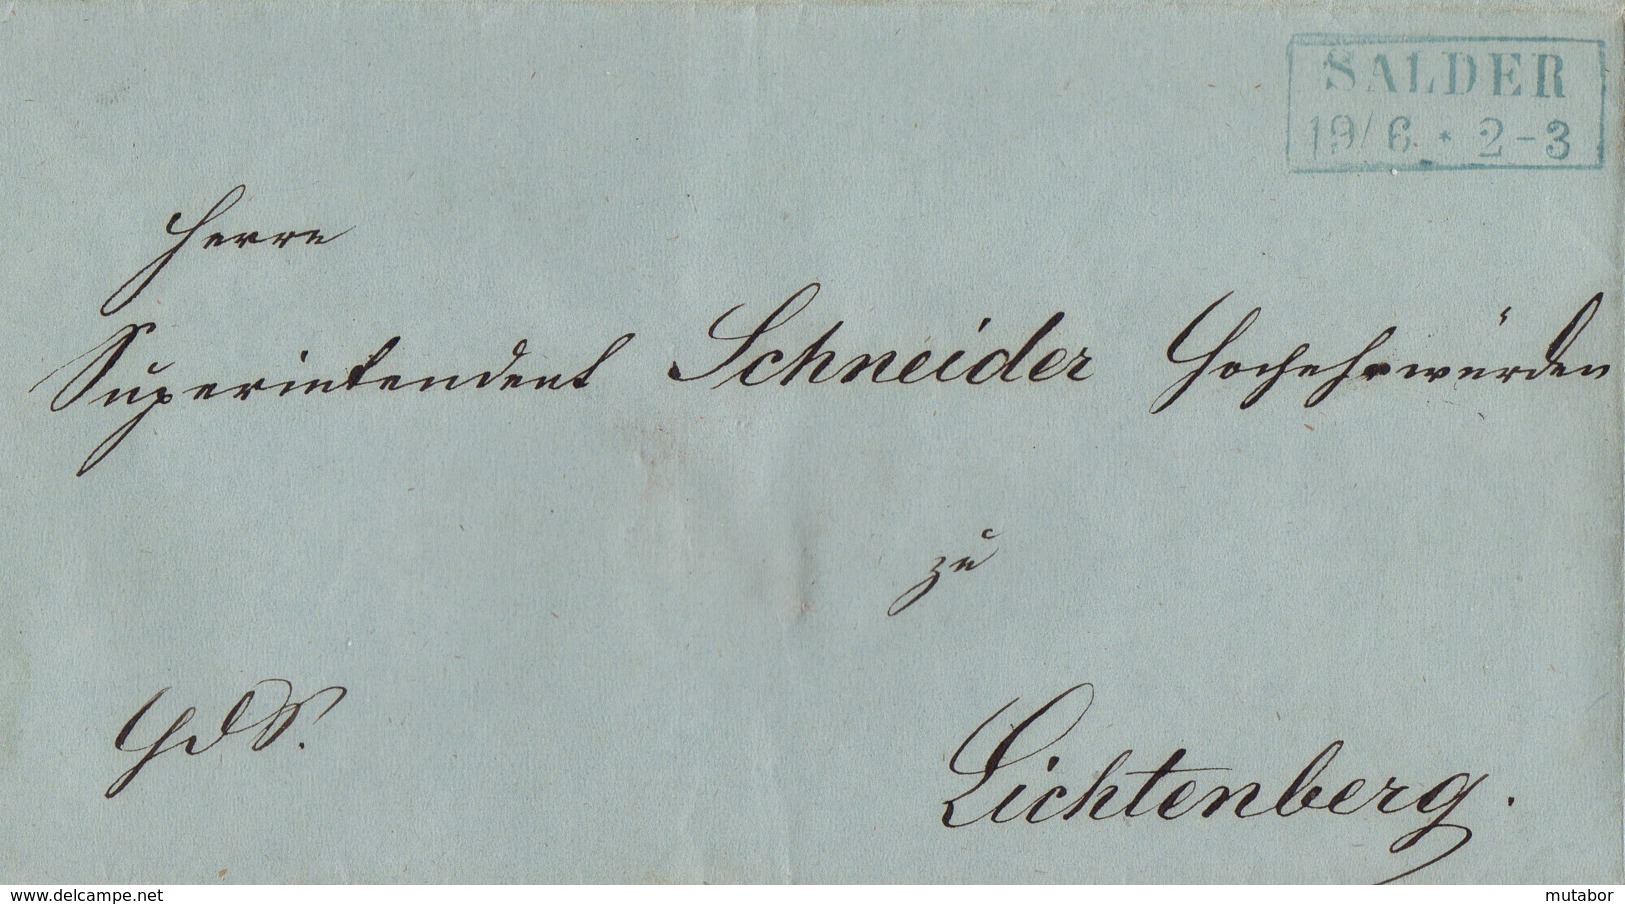 SALDER
19/6 * 2-3
Herrn
Superintendent Schneider Hochehrwürden
zu
HdS.
Lichtenberg.
www.delcampe.net
mutabor